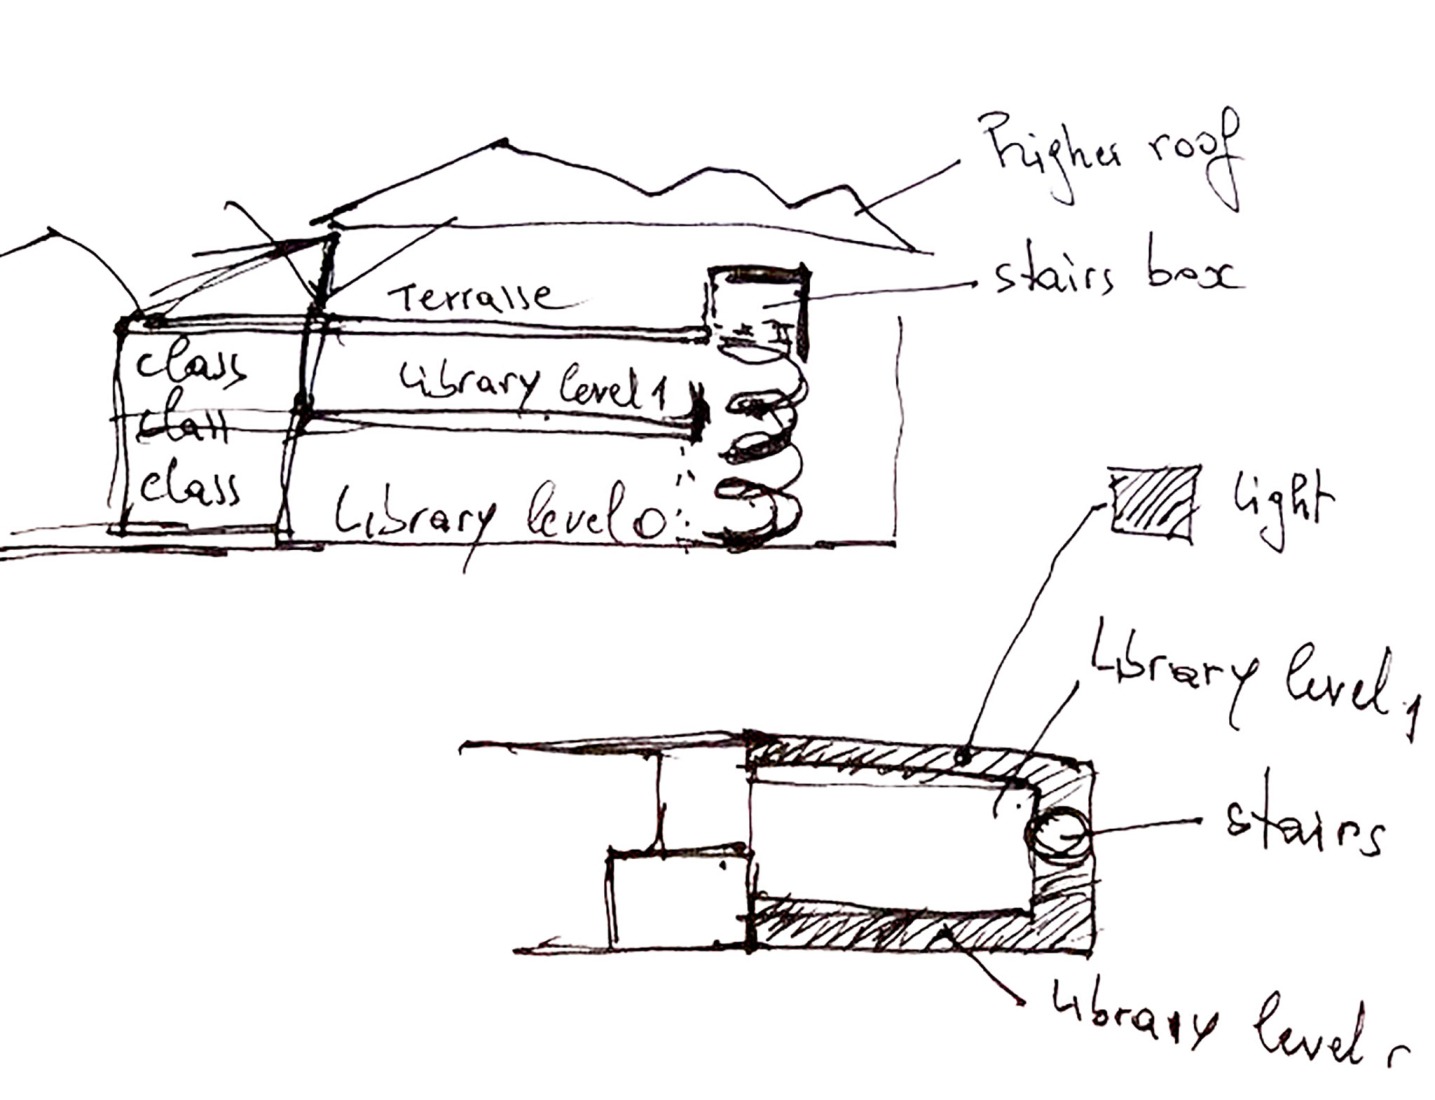 higher roof
stairs box
Terrasse
class
Library level 1
class
class
Library level 0
light
Library level 1
stairs
Library level